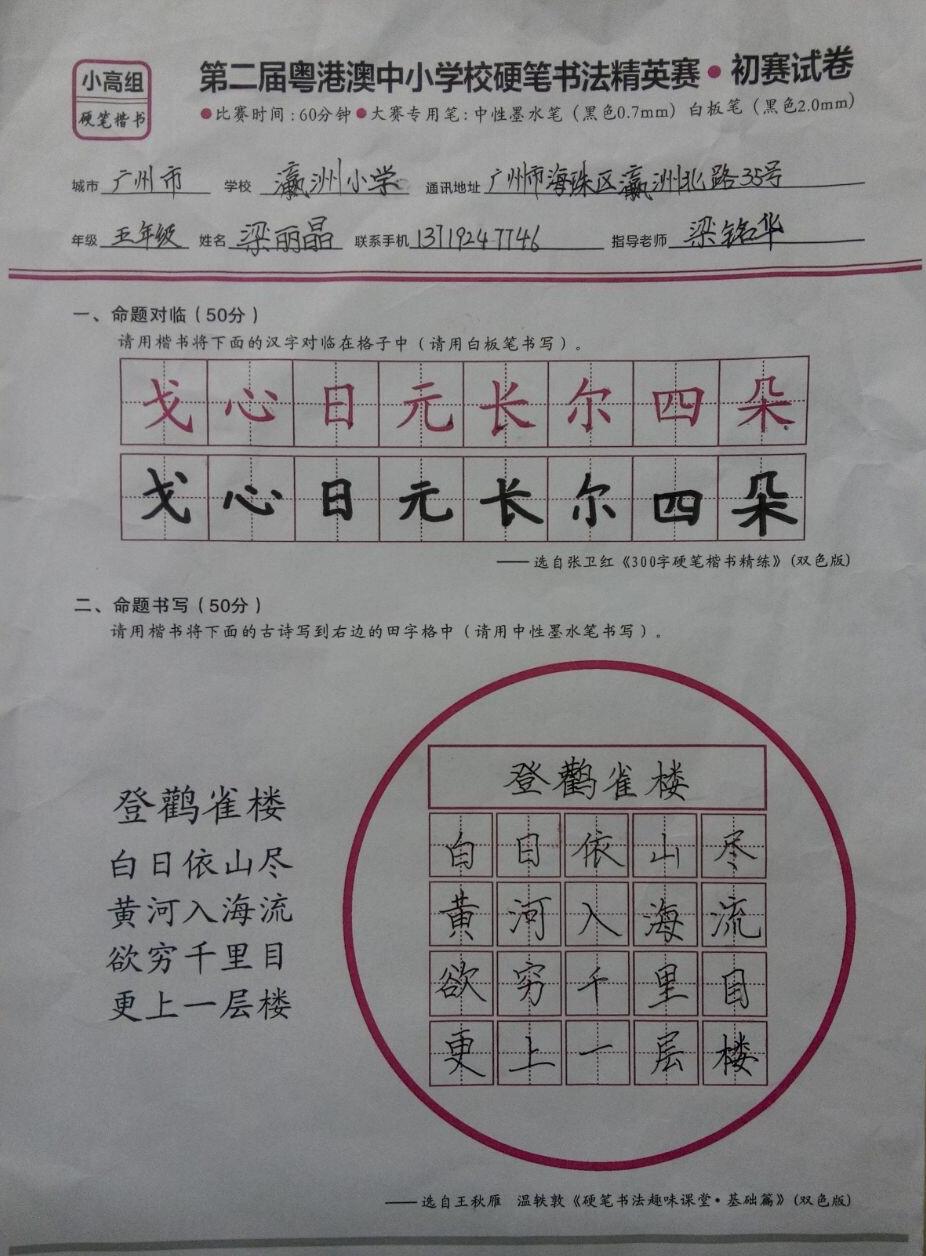 小高组
硬笔楷书
第二届粤港澳中小学校硬笔书法精英赛•初赛试卷
●比赛时间:60分钟●大赛专用笔:中性墨水笔(黑色0.7mm) 白板笔(黑色2.0mm)
城市 广州市 学校 瀛洲小学 通讯地址 广州市海珠区瀛洲北路35号
年级 五年级 姓名 梁丽晶 联系手机 13719247746 指导老师 梁铭华
一、命题对临(50分)
请用楷书将下面的汉字对临在格子中(请用白板笔书写)。
戈心日元长尔四朵
戈心日元长尔四朵
——选自张卫红《300字硬笔楷书精练》(双色版)
二、命题书写(50分)
请用楷书将下面的古诗写到右边的田字格中(请用中性墨水笔书写)。
登鹳雀楼
白日依山尽
黄河入海流
欲穷千里目
更上一层楼
登鹳雀楼
白日依山尽
黄河入海流
欲穷千里目
更上一层楼
——选自王秋雁 温轶敦《硬笔书法趣味课堂·基础篇》(双色版)